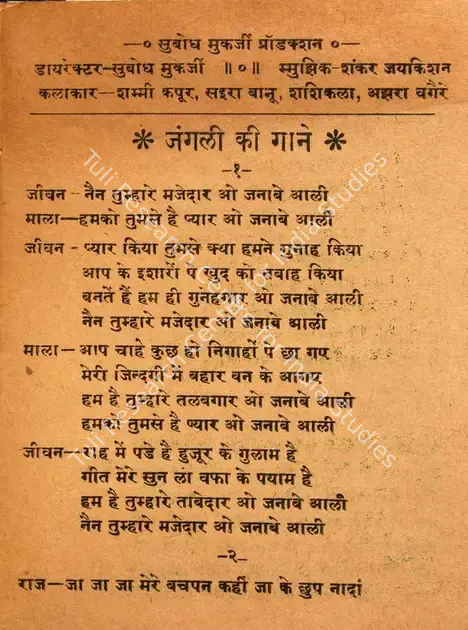 —० सुबोध मुकर्जी प्रॉडक्शन ०—
डायरेक्टर–सुबोध मुकर्जी ॥०॥ म्सुझिक–शंकर जयकिशन
कलाकार—शम्मी कपूर, सइरा बानू, शाशिकला, अझरा वगैरे
* जंगली की गाने *
–१–
जीवन – नैन तुम्हारे मजेदार ओ जनाबे आली
माला—हमको तुमसे है प्यार ओ जनाबे आली
जीवन - प्यार किया तुमसे क्या हमने गुनाह किया
आप के इशारों प खुद को तबाह किया
बनतें हैं हम ही गुनहगार ओ जनाबे आली
नैन तुम्हारे मजेदार ओ जनाबे आली
माला—आप चाहे कुछ हो निगाहों प छा गए
मेरी जिन्दगी में बहार बन के आगए
हम है तुम्हारे तलबगार ओ जनाबे आली
हमको तुमसे है प्यार ओ जनाबे आली
जीवन—राह में पडे है हुजूर के गुलाम है
गीत मेरे सुन लो वफा के पयाम है
हम है तुम्हारे ताबेदार ओ जनाबे आली
नैन तुम्हारे मजेदार ओ जनाबे आली
–२–
राज—जा जा जा मेरे बचपन कहीं जा के छुप नादां
Tuli Research Centre for India Studies
Tuli Research Centre for India Studies